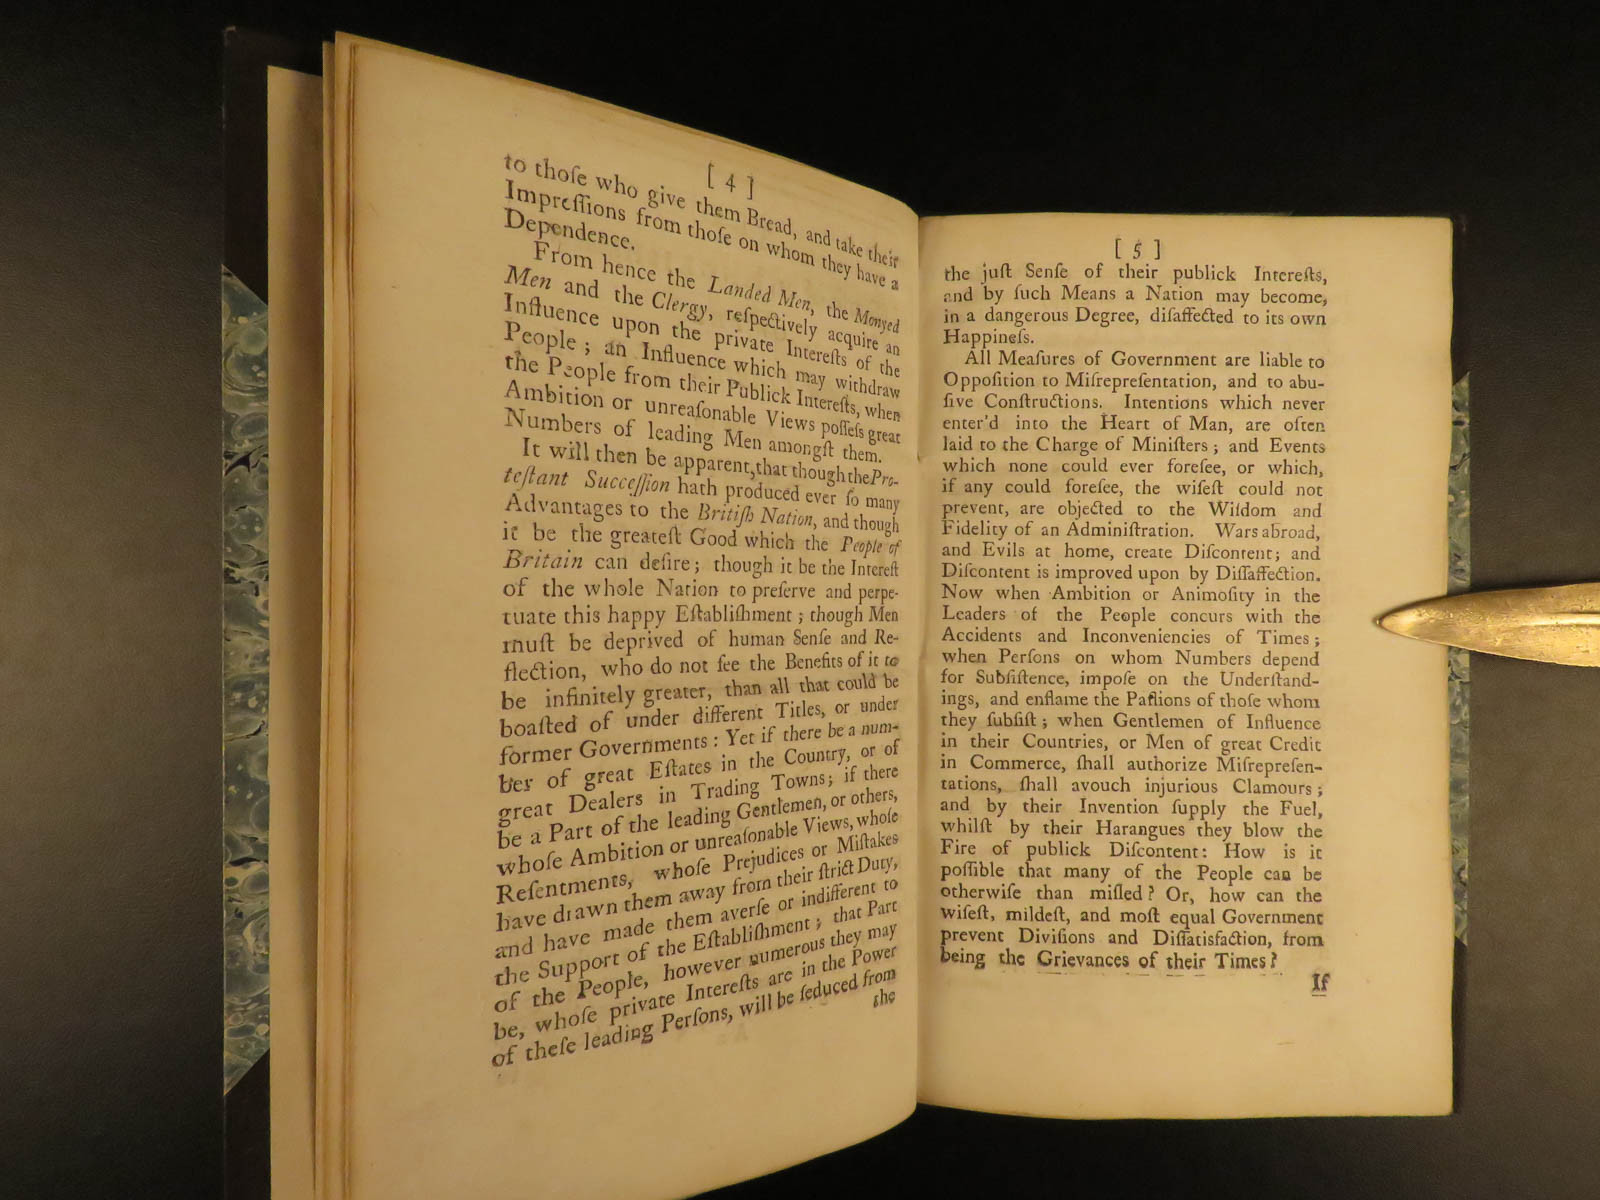 [ 4 ]
to thoſe who give them Bread, and take their
Impreſſions from thoſe on whom they have a
Dependence.
From hence the Landed Men, the Monyed
Men and the Clergy, reſpectively acquire an
Influence upon the private Intereſts of the
People; an Influence which may withdraw
the People from their Publick Intereſts, when
Ambition or unreaſonable Views poſſeſs great
Numbers of leading Men amongſt them.
It will then be apparent, that though the Pro-
teſtant Succeſſion hath produced ever ſo many
Advantages to the Britiſh Nation, and though
it be the greateſt Good which the People of
Britain can deſire; though it be the Intereſt
of the whole Nation to preſerve and perpe-
tuate this happy Eſtabliſhment; though Men
muſt be deprived of human Senſe and Re-
flection, who do not ſee the Benefits of it to
be infinitely greater, than all that could be
boaſted of under different Titles, or under
former Governments: Yet if there be a num-
ber of great Eſtates in the Country, or of
great Dealers in Trading Towns; if there
be a Part of the leading Gentlemen, or others,
whoſe Ambition or unreaſonable Views, whoſe
Reſentments, whoſe Prejudices or Miſtakes
have drawn them away from their ſtrict Duty,
and have made them averſe or indifferent to
the Support of the Eſtabliſhment; that Part
of the People, however numerous they may
be, whoſe private Intereſts are in the Power
of theſe leading Perſons, will be ſeduced from
the
[ 5 ]
the juſt Senſe of their publick Intereſts,
and by ſuch Means a Nation may become,
in a dangerous Degree, diſaffected to its own
Happineſs.
All Meaſures of Government are liable to
Oppoſition to Miſrepreſentation, and to abu-
ſive Conſtructions. Intentions which never
enter'd into the Heart of Man, are often
laid to the Charge of Miniſters; and Events
which none could ever foreſee, or which,
if any could foreſee, the wiſeſt could not
prevent, are objected to the Wiſdom and
Fidelity of an Adminiſtration. Wars abroad,
and Evils at home, create Diſcontent; and
Diſcontent is improved upon by Diſſaffection.
Now when Ambition or Animoſity in the
Leaders of the People concurs with the
Accidents and Inconveniencies of Times;
when Perſons on whom Numbers depend
for Subſiſtence, impoſe on the Underſtand-
ings, and enflame the Paſſions of thoſe whom
they ſubſiſt; when Gentlemen of Influence
in their Countries, or Men of great Credit
in Commerce, ſhall authorize Miſrepreſen-
tations, ſhall avouch injurious Clamours;
and by their Invention ſupply the Fuel,
whilſt by their Harangues they blow the
Fire of publick Diſcontent: How is it
poſſible that many of the People can be
otherwiſe than miſled? Or, how can the
wiſeſt, mildeſt, and moſt equal Government
prevent Diviſions and Diſſatisfaction, from
being the Grievances of their Times?
If